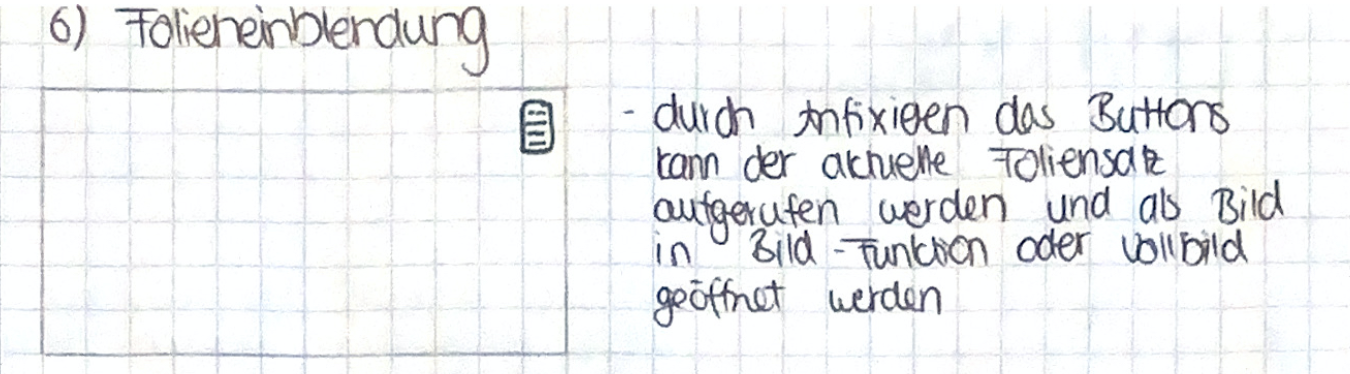 6) Folieneinblendung
- durch Anfixieren das Buttons
kann der aktuelle Foliensatz
aufgerufen werden und als Bild
in Bild-Funktion oder Vollbild
geöffnet werden